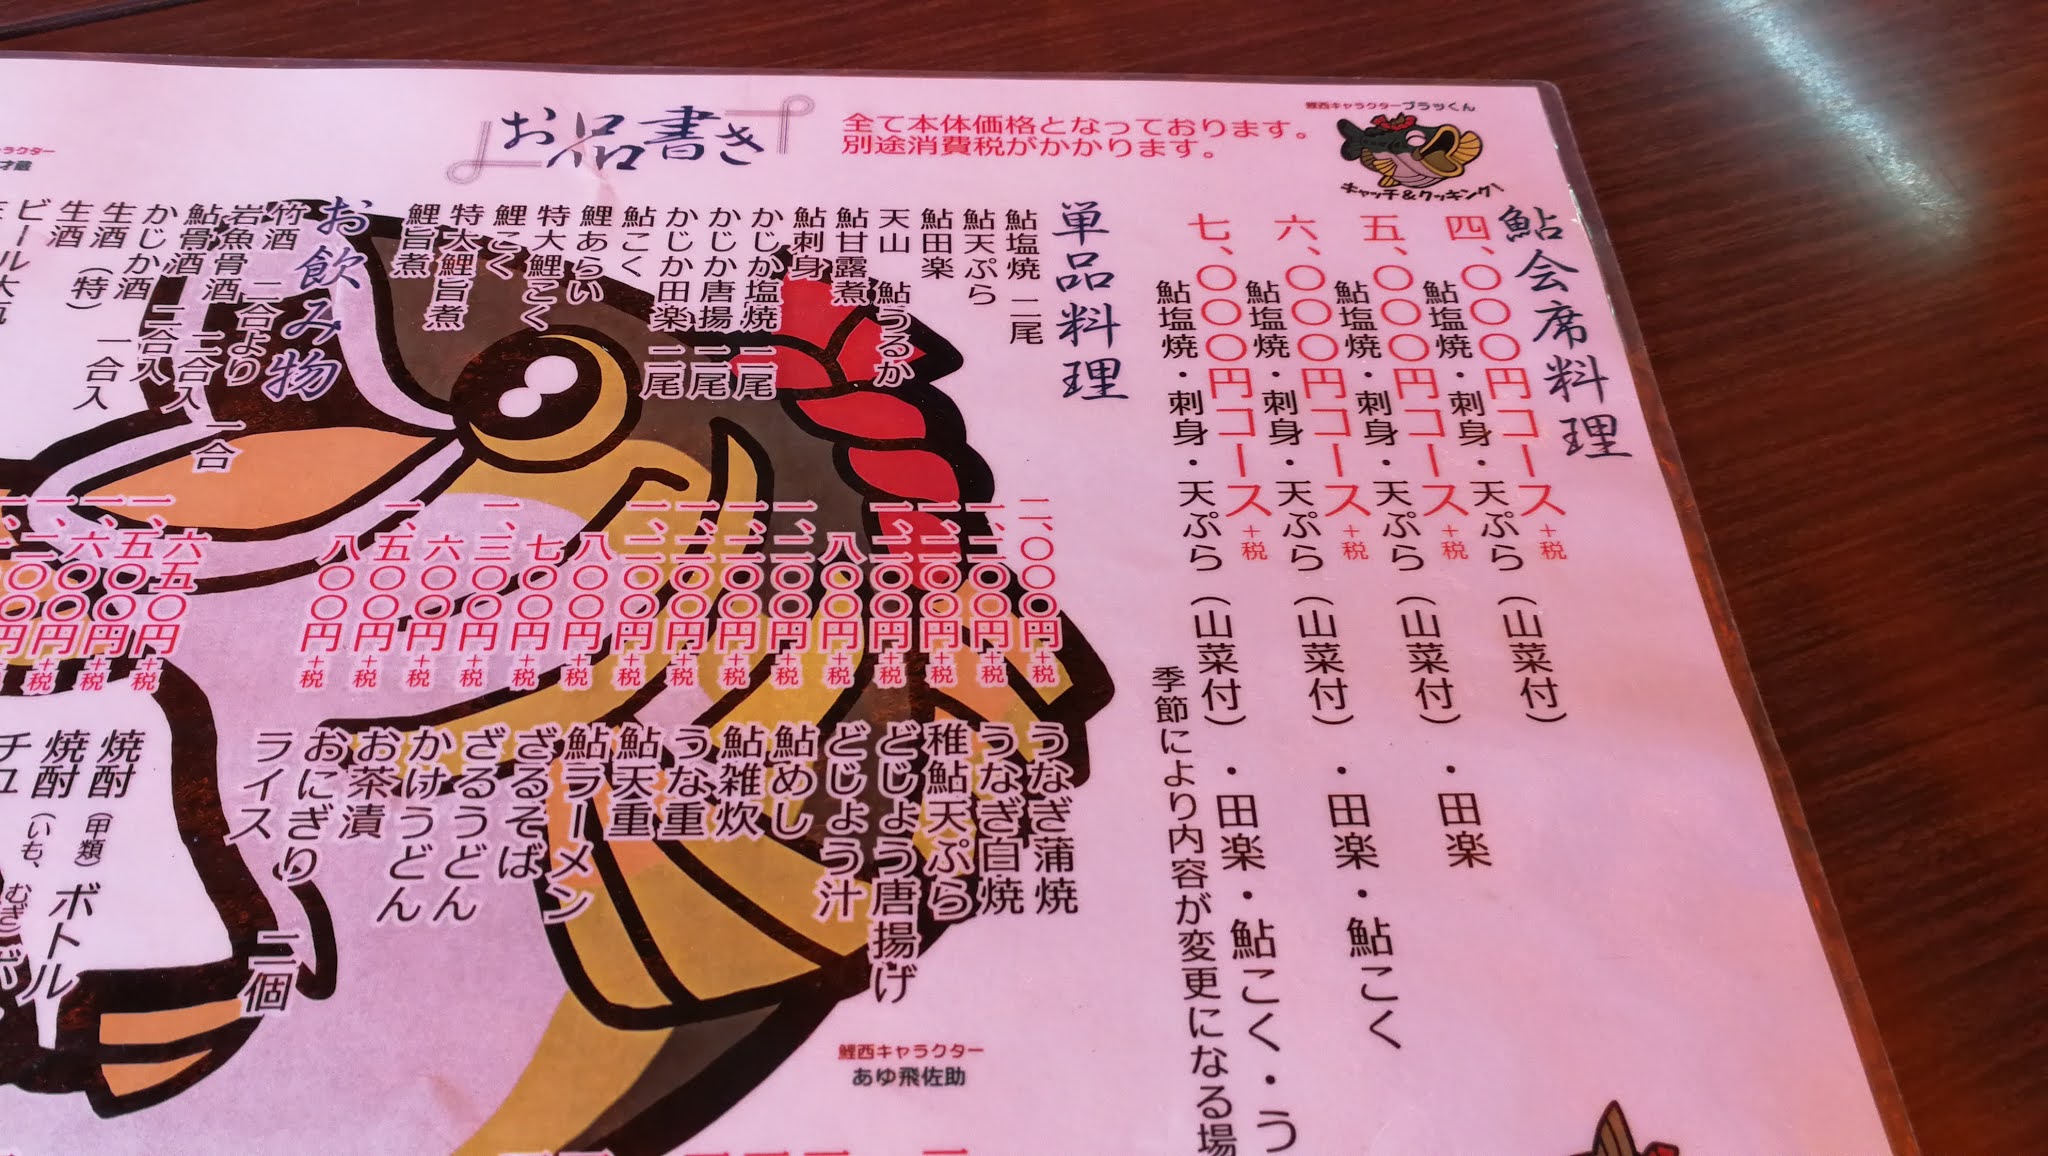 お品書き
全て本体価格となっております。
別途消費税がかかります。
鯉西キャラクターブラッくん
キャッチ&クッキング
鮎会席料理
四、〇〇〇円コース+税
鮎塩焼・刺身・天ぷら（山菜付）・田楽
五、〇〇〇円コース+税
鮎塩焼・刺身・天ぷら（山菜付）・田楽・鮎こく
六、〇〇〇円コース+税
鮎塩焼・刺身・天ぷら（山菜付）・田楽・鮎こく・う
七、〇〇〇円コース+税
鮎塩焼・刺身・天ぷら（山菜付）
季節により内容が変更になる場
単品料理
鮎塩焼 二尾 二、〇〇〇円+税
鮎天ぷら 一、二〇〇円+税
鮎田楽 一、二〇〇円+税
天山 鮎うるか 一、二〇〇円+税
鮎甘露煮 八〇〇円+税
鮎刺身 一、二〇〇円+税
かじか塩焼 二尾 一、二〇〇円+税
かじか唐揚 二尾 一、二〇〇円+税
かじか田楽 二尾 一、二〇〇円+税
鮎こく 八〇〇円+税
鯉あらい 七〇〇円+税
特大鯉こく 一、三〇〇円+税
鯉こく 六〇〇円+税
特大鯉旨煮 一、五〇〇円+税
鯉旨煮 八〇〇円+税
うなぎ蒲焼
うなぎ白焼
稚鮎天ぷら
どじょう唐揚げ
どじょう汁
鮎めし
鮎雑炊
うな重
鮎天重
鮎ラーメン
ざるそば
ざるうどん
かけうどん
お茶漬
おにぎり 二個
ライス
お飲み物
竹酒 二合より
岩魚骨酒 二合入 一合
鮎骨酒 二合入
かじか酒
生酒（特） 一合入
生酒
ビール大瓶
六五〇円+税
一、五〇〇円+税
一、六〇〇円+税
焼酎（甲類）ボトル
焼酎（いも、むぎ）ボ
チュ
鯉西キャラクター
あゆ飛佐助
ラクター
才蔵